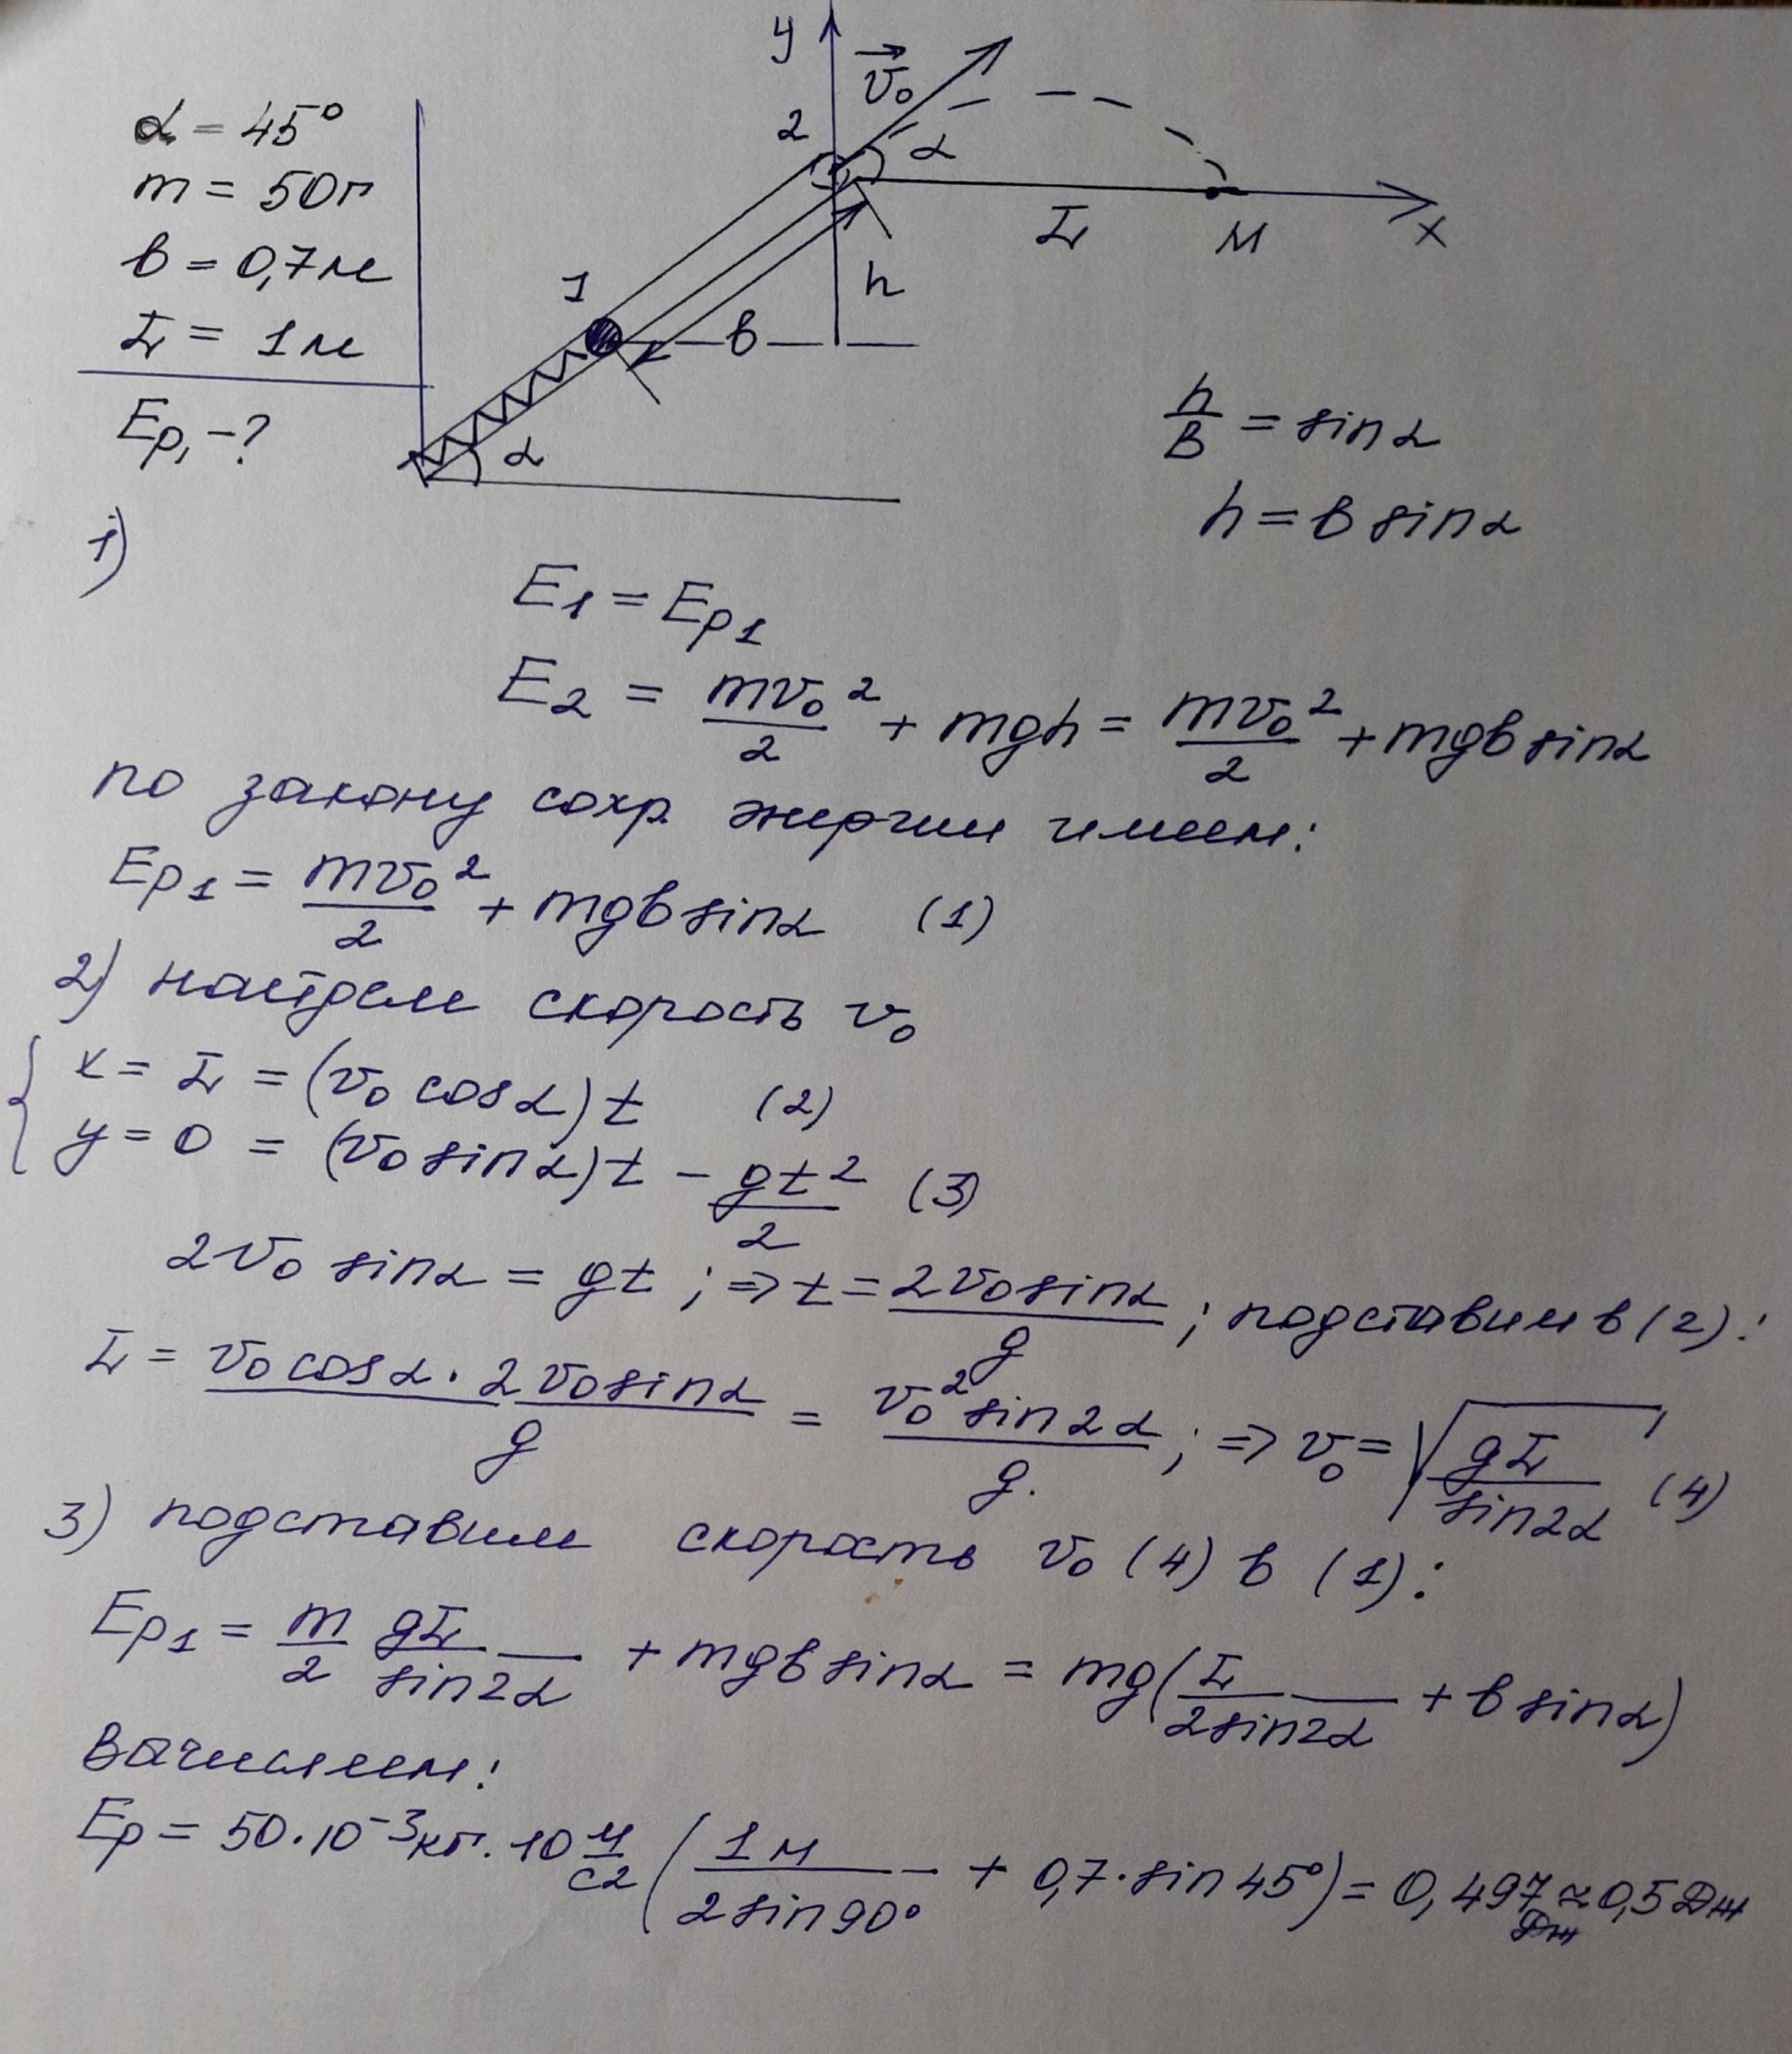 α = 45°
m = 50г
b = 0,7м
L = 1м
Ep₁ - ?
y
v₀
2
α
1
b
h
L
M
x
α
h/B = sinα
h = b sinα
1)
E₁ = Ep₁
E₂ = mv₀²/2 + mgh = mv₀²/2 + mgb sinα
по закону сохр. энергии имеем:
Ep₁ = mv₀²/2 + mgb sinα (1)
2) найдем скорость v₀
x = L = (v₀ cosα)t (2)
y = 0 = (v₀ sinα)t - gt²/2 (3)
2v₀ sinα = gt ; => t = 2v₀ sinα/g ; подставим в (2):
L = v₀ cosα · 2v₀ sinα/g = v₀² sin2α/g. ; => v₀ = √(gL/sin2α) (4)
3) подставим скорость v₀ (4) в (1):
Ep₁ = m/2 gL/sin2α + mgb sinα = mg(L/2sin2α + b sinα)
Вычислим:
Ep = 50·10⁻³кг·10 м/с2 (1м/2sin90° + 0,7·sin45°) = 0,497 Дж ≈ 0,5 Дж